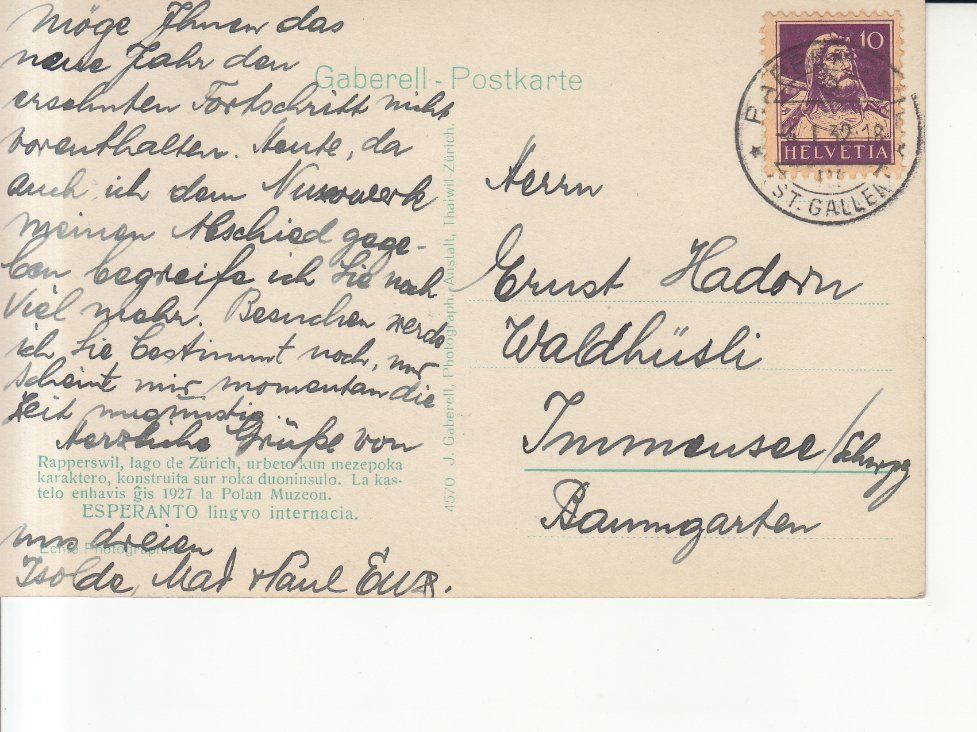 Möge Ihnen das
neue Jahr den
ersehnten Fortschritt nicht
vorenthalten. Heute, da
auch ich dem
meinen Abschied gege-
ben begreife ich Sie noch
viel mehr. Besuchen werde
ich Sie bestimmt noch, nur
scheint mir momentan die
Zeit ungünstig.
Herzliche Grüße von
uns dreien
Isolde, Paul
Gaberell - Postkarte
Rapperswil, lago de Zürich, urbeto kun mezepoka
karaktero, konstruita sur roka duoninsulo. La kas-
telo enhavis ĝis 1927 la Polan Muzeon.
ESPERANTO lingvo internacia.
Echte Photographie
4570 J. Gaberell, Photograph. Anstalt, Thalwil-Zürich.
10
HELVETIA
I. 32. 18
(ST. GALLEN)
Herrn
Ernst Hadorn
Waldhüsli
Immensee/Schwyz
Baumgarten